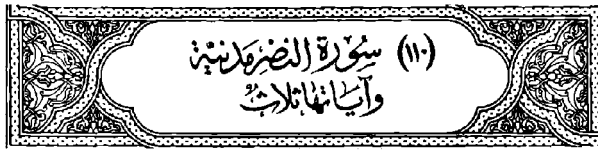 (١١٠) سُورَةُ النَّصْرِ مَدَنِيَّة
وَآيَاتُهَا ثَلَاثٌ